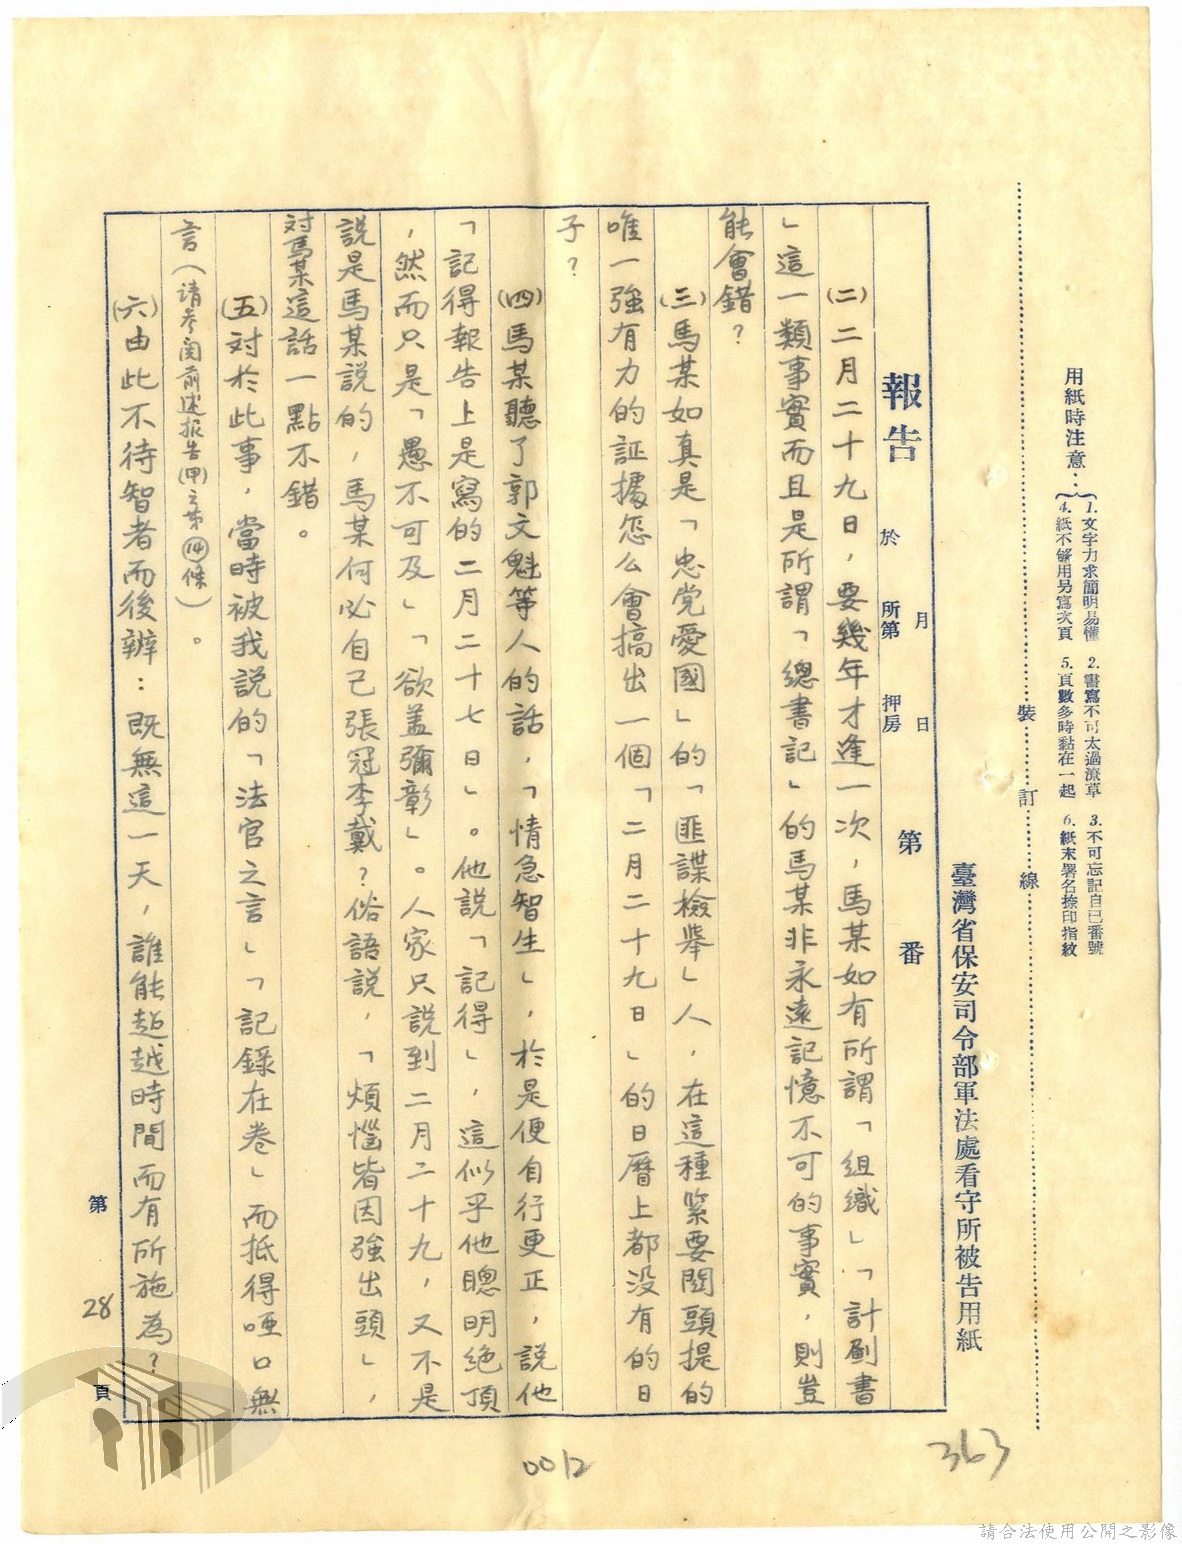 用紙時注意：{1.文字力求簡明易懂 2.書寫不可太過潦草 3.不可忘記自己番號
4.紙不够用另寫次頁 5.頁數多時黏在一起 6.紙末署名捺印指紋
裝訂線
臺灣省保安司令部軍法處看守所被告用紙
報告 於 月 日 所第 押房 第 番
(二)二月二十九日，要幾年才逢一次，馬某如有所謂「組織」「計劃書
」這一類事實而且是所謂「總書記」的馬某非永遠記憶不可的事實，則豈
能會錯？
(三)馬某如真是「忠党愛國」的「匪諜檢舉」人，在這種緊要関頭提的
唯一強有力的証據怎么會搞出一個「二月二十九日」的日曆上都没有的日
子？
(四)馬某聽了郭文魁等人的話，「情急智生」，於是便自行更正，說他
「記得報告上是寫的二月二十七日」。他說「記得」，這似乎他聰明絶頂
，然而只是「愚不可及」「欲盖彌彰」。人家只說到二月二十九，又不是
說是馬某說的，馬某何必自己張冠李戴？俗語說，「煩惱皆因強出頭」，
対馬某這話一點不錯。
(五)対於此事，當時被我説的「法官之言」「記錄在卷」而抵得啞口無
言（请参閲前述报告(甲)之第⑭條）。
(六)由此不待智者而後辨：既無這一天，誰能超越時間而有所施為？
第28頁
363
0012
請合法使用公開之影像